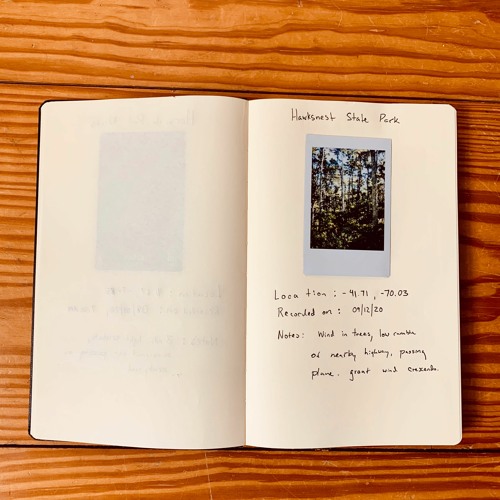 Hawksnest State Park
Location : -41.71 , -70.03
Recorded on : 09/12/20
Notes: Wind in trees, low rumble
of nearby highway, passing
plane, great wind crescendo.